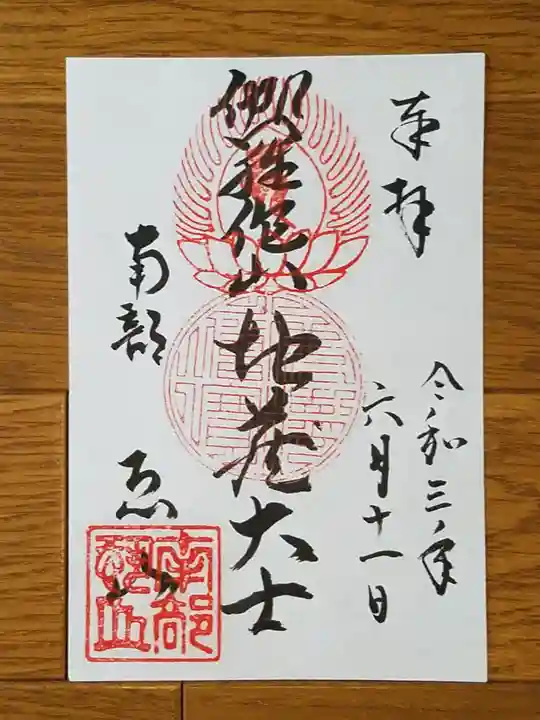 奉拝
令和三年
六月十一日
伽羅陀山地蔵大士
南部
恐山
南部
恐山